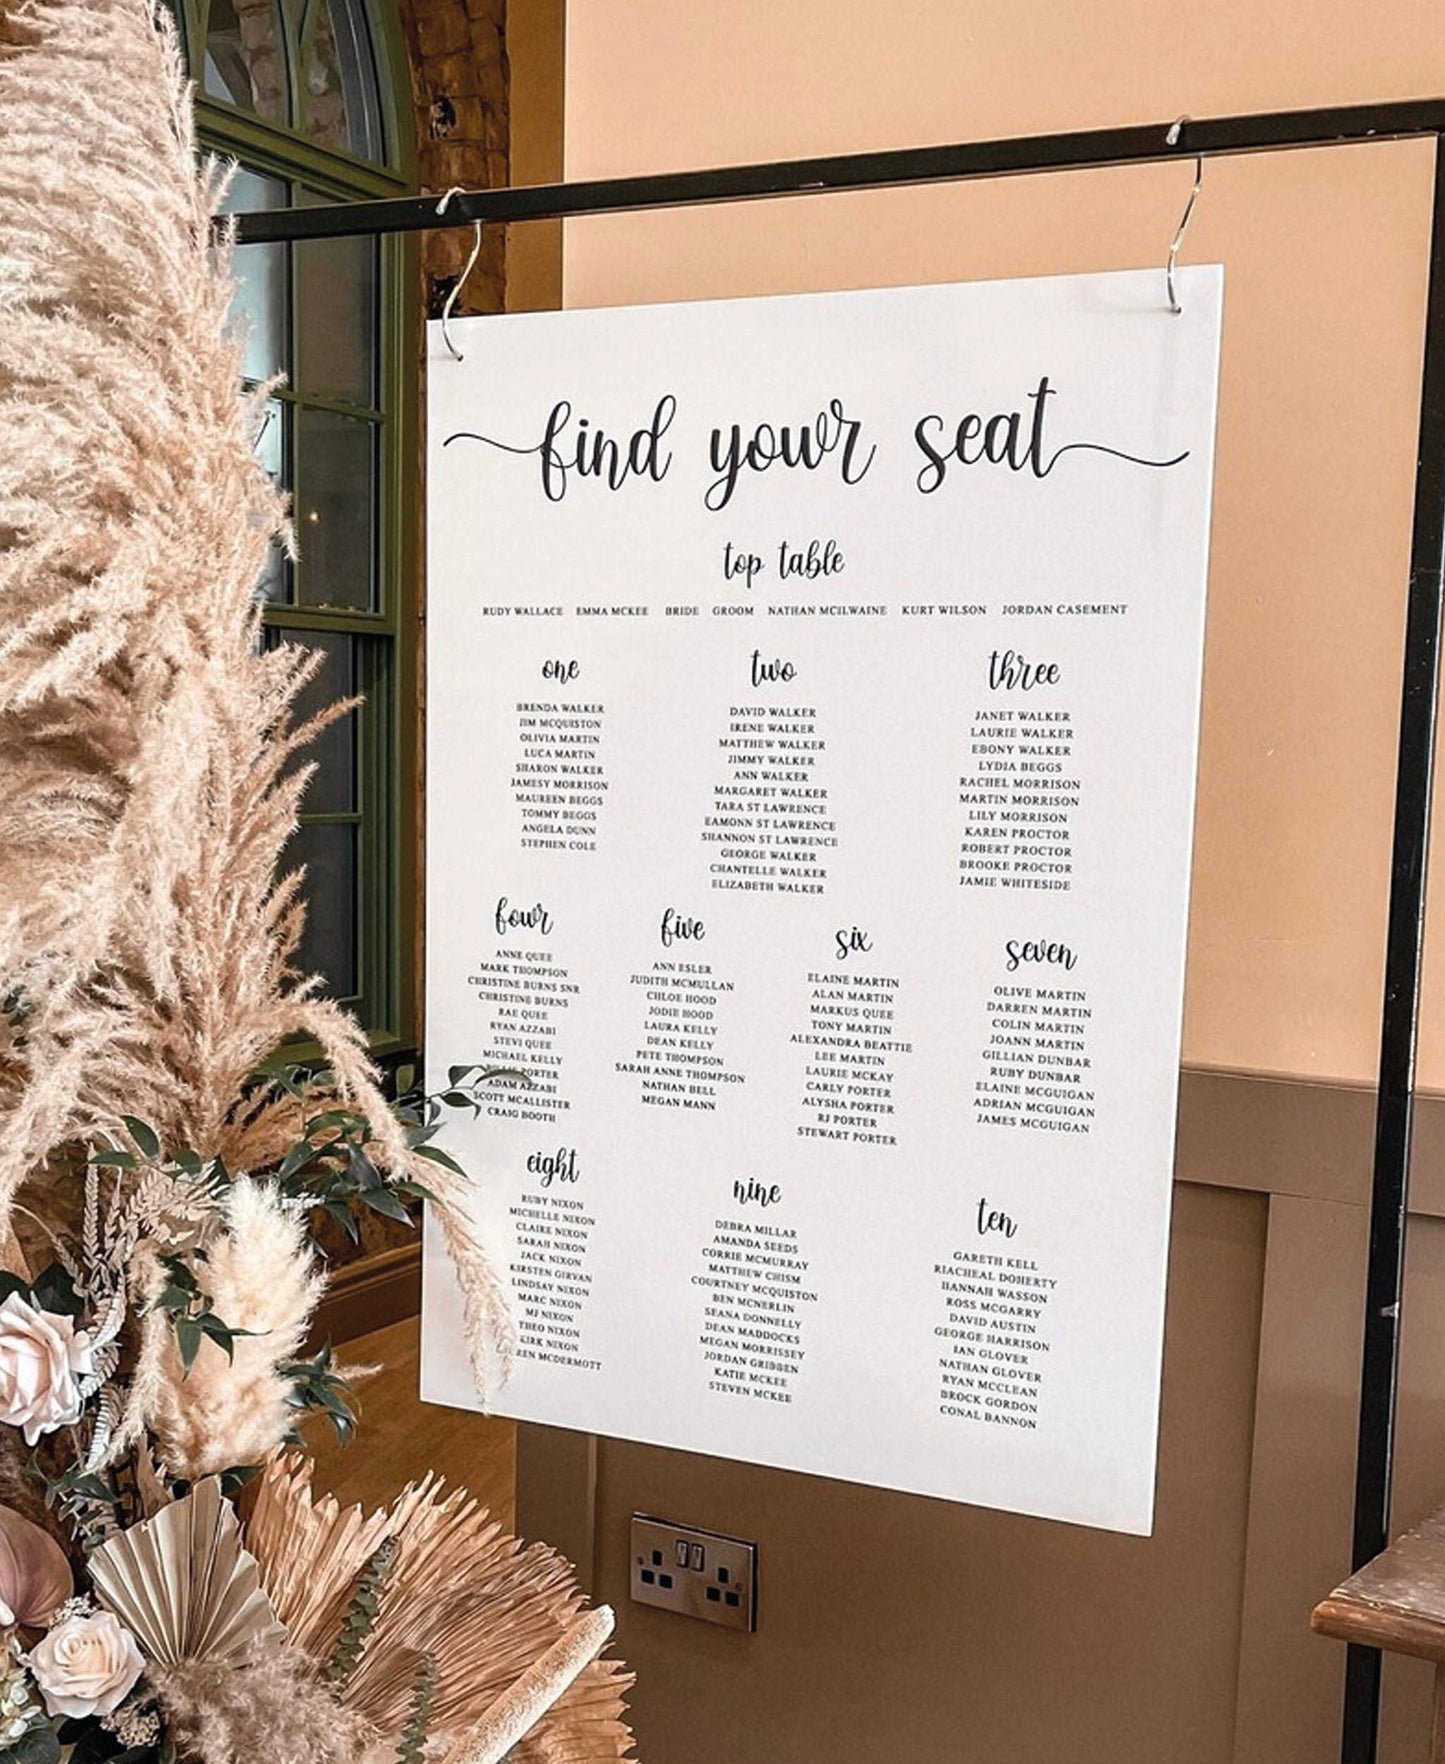 find your seat
top table
RUDY WALLACE EMMA MCKEE BRIDE GROOM NATHAN MCILWAINE KURT WILSON JORDAN CASEMENT
one
BRENDA WALKER
JIM MCQUISTON
OLIVIA MARTIN
LUCA MARTIN
SHARON WALKER
JAMESY MORRISON
MAUREEN BEGGS
TOMMY BEGGS
ANGELA DUNN
STEPHEN COLE
two
DAVID WALKER
IRENE WALKER
MATTHEW WALKER
JIMMY WALKER
ANN WALKER
MARGARET WALKER
TARA ST LAWRENCE
EAMONN ST LAWRENCE
SHANNON ST LAWRENCE
GEORGE WALKER
CHANTELLE WALKER
ELIZABETH WALKER
three
JANET WALKER
LAURIE WALKER
EBONY WALKER
LYDIA BEGGS
RACHEL MORRISON
MARTIN MORRISON
LILY MORRISON
KAREN PROCTOR
ROBERT PROCTOR
BROOKE PROCTOR
JAMIE WHITESIDE
four
ANNE QUEE
MARK THOMPSON
CHRISTINE BURNS SNR
CHRISTINE BURNS
RAE QUEE
RYAN AZZABI
STEVI QUEE
MICHAEL KELLY
PORTER
ADAM AZZABI
SCOTT MCALLISTER
CRAIG BOOTH
five
ANN ESLER
JUDITH MCMULLAN
CHLOE HOOD
JODIE HOOD
LAURA KELLY
DEAN KELLY
PETE THOMPSON
SARAH ANNE THOMPSON
NATHAN BELL
MEGAN MANN
six
ELAINE MARTIN
ALAN MARTIN
MARKUS QUEE
TONY MARTIN
ALEXANDRA BEATTIE
LEE MARTIN
LAURIE MCKAY
CARLY PORTER
ALYSHA PORTER
RJ PORTER
STEWART PORTER
seven
OLIVE MARTIN
DARREN MARTIN
COLIN MARTIN
JOANN MARTIN
GILLIAN DUNBAR
RUBY DUNBAR
ELAINE MCGUIGAN
ADRIAN MCGUIGAN
JAMES MCGUIGAN
eight
RUBY NIXON
MICHELLE NIXON
CLAIRE NIXON
SARAH NIXON
JACK NIXON
KIRSTEN GIRVAN
LINDSAY NIXON
MARC NIXON
MJ NIXON
THEO NIXON
KIRK NIXON
MCDERMOTT
nine
DEBRA MILLAR
AMANDA SEEDS
CORRIE MCMURRAY
MATTHEW CHISM
COURTNEY MCQUISTON
BEN MCNERLIN
SEANA DONNELLY
DEAN MADDOCKS
MEGAN MORRISSEY
JORDAN GRIBBEN
KATIE MCKEE
STEVEN MCKEE
ten
GARETH KELL
RIACHEAL DOHERTY
HANNAH WASSON
ROSS MCGARRY
DAVID AUSTIN
GEORGE HARRISON
IAN GLOVER
NATHAN GLOVER
RYAN MCCLEAN
BROCK GORDON
CONAL BANNON